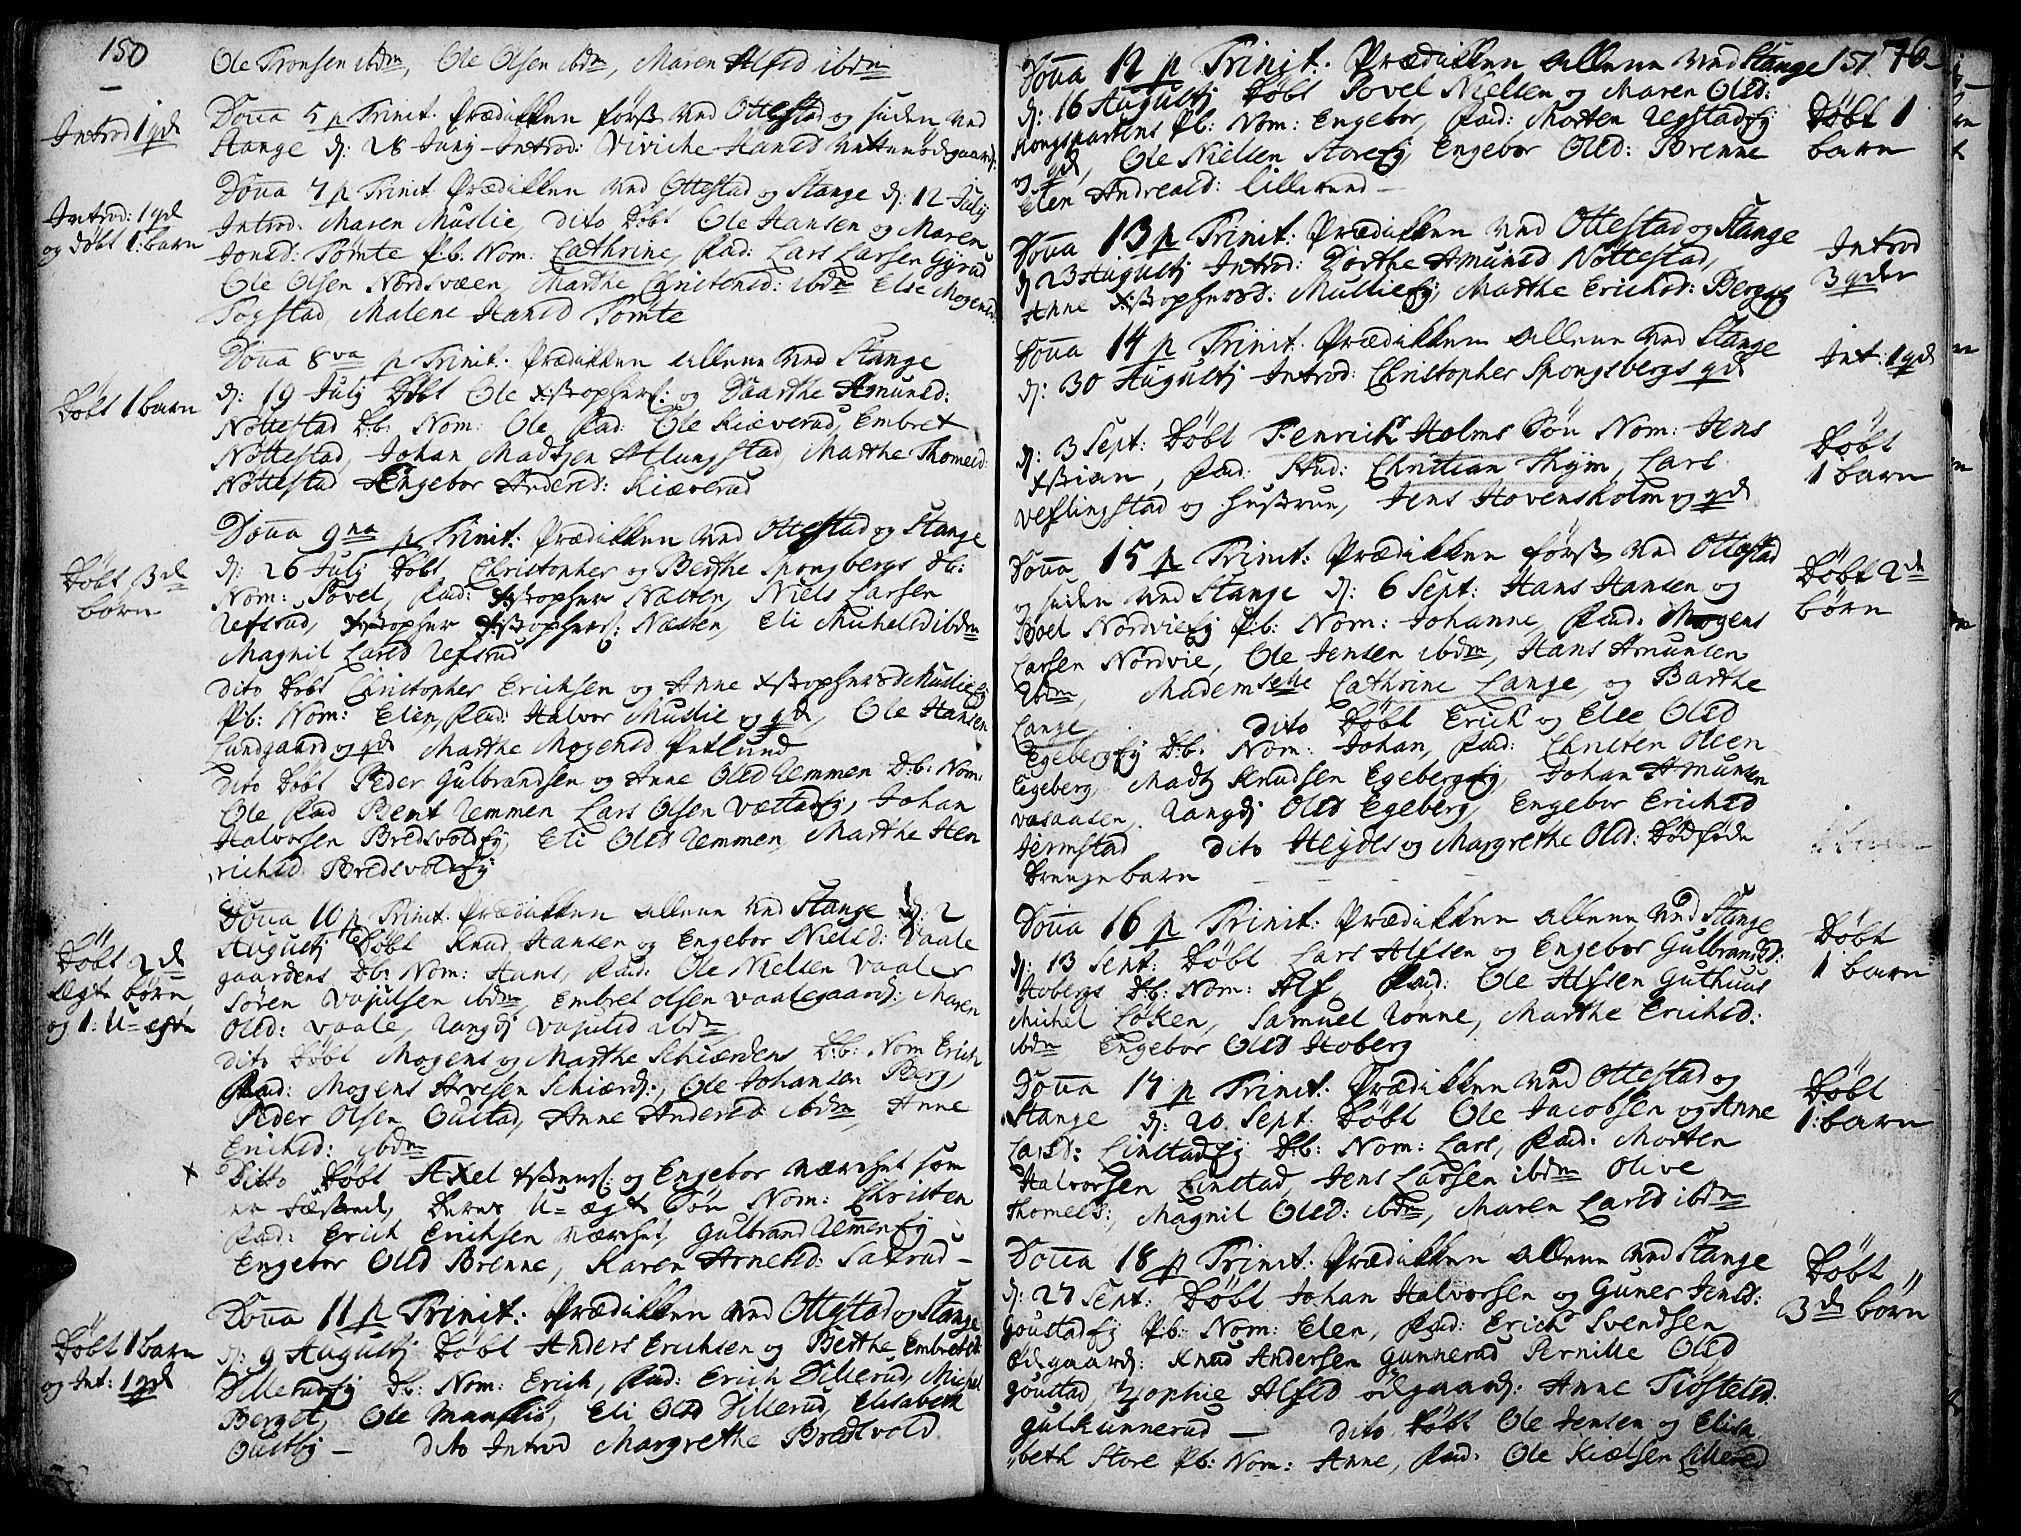 150
Ole Tronsen ibdm, Ole Olsen ibdm, Maren Alfsd ibdm
Introd 1 qd
Doùa 5 p Trinit. Prædikken först ved Ottestad og siden ved
Stange d: 28 Junij Introd: Viviche Hansd
Introd: 1 qd
og döbt 1: barn
Doùa 7 p Trinit Prædikken ved Ottestad og Stange d: 12 Julij
Introd. Maren Muslie, dito Döbt Ole Hansen og Maren
Jonsd: Tömte P.b: Nom: Cathrine, Fad: Lars Larsen Gyrud
Ole Olsen Nordsvæen, Marthe Christensd: ibdm Else Mogensd:
Togstad Malene Hansd Tömte
Doùa 8va p Trinit: Prædikken allene ved Stange
Döbt 1 barn
d: 19 Julij Döbt Ole og Daarthe Amunsd:
Nöttestad D:b: Nom: Ole, Fad: Ole Kiæverud, Embret
Nöttestad, Johan Madtzen Alungstad, Marthe Thomesd:
Nöttestad Engebor Andersd: Kiæverud
Doùa 9na p Trinit: Prædikken ved Ottestad og Stange
Döbt 3de
börn
d: 26 Julij Döbt Christopher og Berthe Spongbergs Db:
Nom: Povel, Fad: Næsten, Niels Larsen
Refsrud, Næsten, Eli Michelsd ibdm
Magnil Larsd Refsrud
dito Döbt Christopher Erichsen og Anne Muslie
P:b: Nom: Elen, Fad: Halvor Muslie og qd, Ole Hansen
Lundgaard og qd Marthe Mogensd
dito Döbt Peder Gulbrandsen og Anne Olsd Remmen D:b: Nom:
Ole Fad Bent Remmen Lars Olsen, Johan
Halvorsen Bredsvold, Eli Olsd Remmen, Marthe Hen
richsd Bredsvold
Doùa 10 p Trinit. Prædikken allene ved Stange d: 2
Döbt 2de
ægte börn
og 1: U= egte
Augustij Döbt Knud Hansen og Engebor Nielsd: Vaale
gaardens Db: Nom: Hans, Fad: Ole Nielsen Vaaler
Sören ibdm, Embret olsen Vaalegaard:, Maren
Olsd: Vaale, ibdm
dito Döbt Mogens og Marthe Schiærdens D:b: Nom Erich
Fad: Mogens Arvesen Schiærd:, Ole Johansen Berg,
Peder Olsen Oustad, Anne Andersd: ibdm, Anne
Erichsd: ibdm
Ditto Döbt Axel og Engebor som
Deres U= ægte Sön Nom: Christen
Fad: Erich Erichsen, Gulbrand Remen
Engebor Olsd Brenne, Karen Arnesd:
Doùa 11 p Trinit: Prædikken ved Ottestad og Stange
Döbt 1 barn
og Int: 1 qd
d: 9 Augustij Döbt Anders Erichsen og Berthe Embretsd:
Dillerud D:b: Nom: Erich, Fad: Erich Dillerud, Michel
Berget, Ole, Eli Olsd Dillerud, Elisabeth
Oustbij — dito Introd Margrethe Bredsvold
Doùa 12 p Trinit. Prædikken allene ved Stange 151 76
d: 16 Augustij Döbt Povel Nielsen og Maren Olsd:
Döbt 1
barn
Kongspartens P:b: Nom: Engebor, Fad: Morten Regstad
og qd, Ole Nielsen Store, Engebor Olsd: Brenne
Elen Andreasd: Lillerud —
Doùa 13 p Trinit: Prædikken ved Ottestad og Stange
Introd
3 qder
d 23 Augustij Introd: Dorthe Amunsd Nöttestad,
Anne Muslie, Marthe Erichsd: Berg
Doùa 14 p Trinit: Prædikken allene ved Stange
Int: 1 qd
d: 30 Augustij Introd: Christopher Spongsbergs qd
d: 3 Sept: Döbt Henrich Holms Sön Nom: Jens
Döbt
1 barn
Fad: Christian Thÿm, Lars
Veslingstad og Hustrue, Jens Hovensholm og qd
Doùa 15 p Trinit: Prædikken först ved Ottestad
Döbt 2de
börn
og siden ved Stange d: 6 Sept: Hans Hansen og
Boel Nordvie P:b: Nom: Johanne, Fad: Mogens
Larsen Nordvie, Ole Jensen ibdm, Hans Amunsen
ibdm, Mademselle Cathrine Lange, og Barthe
Lange dito Döbt Erich og Else Olsd
Egeberg D:b. Nom: Johan, Fad: Christen Olsen
Egeberg, Madtz Knudsen Egeberg, Johan Amunsen
Vasaasen, Olsd Egeberg, Engebor Erichsd
Jermstad dito og Margrethe Olsd: Dödföde
Drengebarn
Doùa 16 p Trinit: Prædikken allene ved Stange
Döbt
1 barn
d: 13 Sept: Döbt Lars Alfsen og Engebor Gulbrandsd:
Hobergs D:b: Nom: Alf, Fad: Ole Alfsen Guthuus
Michel Löken, Samuel Rönne, Marthe Erichsd:
ibdm Engebor Olsd Hoberg
Doùa 17 p Trinit: Prædikken ved Ottestad og
Döbt
1: barn
Stange d: 20 Sept. Döbt Ole Jacobsen og Anne
Larsd: Linstad D:b: Nom: Lars, Fad: Morten
Halvorsen Linstad, Jens Larsen ibdm Olive
Thomesd:, Magnil Olsd: ibdm, Maren Larsd ibdm
Doùa 18 p Trinit: Prædikken allene ved Stange
Döbt
3de börn
d: 27 Sept: Döbt Johan Halvorsen og Guner Jensd:
Goustad P:b: Nom: Elen, Fad: Erich Svendsen
Odegaard: Knud Andersen Gunnerud Pernille Olsd
Goustad, Zophie Alfsd odegaard: Anne Tiöstelsd.
Gulkunnerud — dito Döbt Ole Jensen og Elisa
beth Store P:b: Nom: Anne, Fad: Ole Kielsen Lillerud